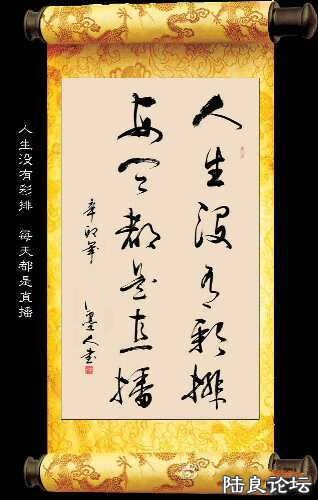 人生没有彩排
每天都是直播
辛卯年
墨人书
人生没有彩排 每天都是直播
陆良论坛